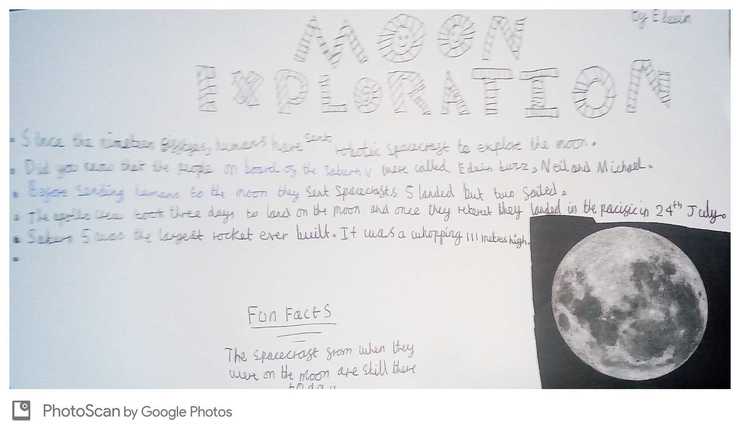 by Edwin
MOON
EXPLORATION
• Since the nineteen fiftyes, humans have sent robotic spacecrast to explore the moon.
• Did you know that the people on board of the Saturn V were called Edwin buzz, Neil and Michael.
• Before sending humans to the moon they sent spacecrasts 5 landed but two failed.
• The apollo crew took three days to land on the moon and once they returnt they landed in the pacific in 24th July.
• Saturn 5 was the largest rocket ever built. It was a whopping 111 metres high.
•
Fun Facts
The spacecrast from when they
were on the moon are still there
today
PhotoScan by Google Photos